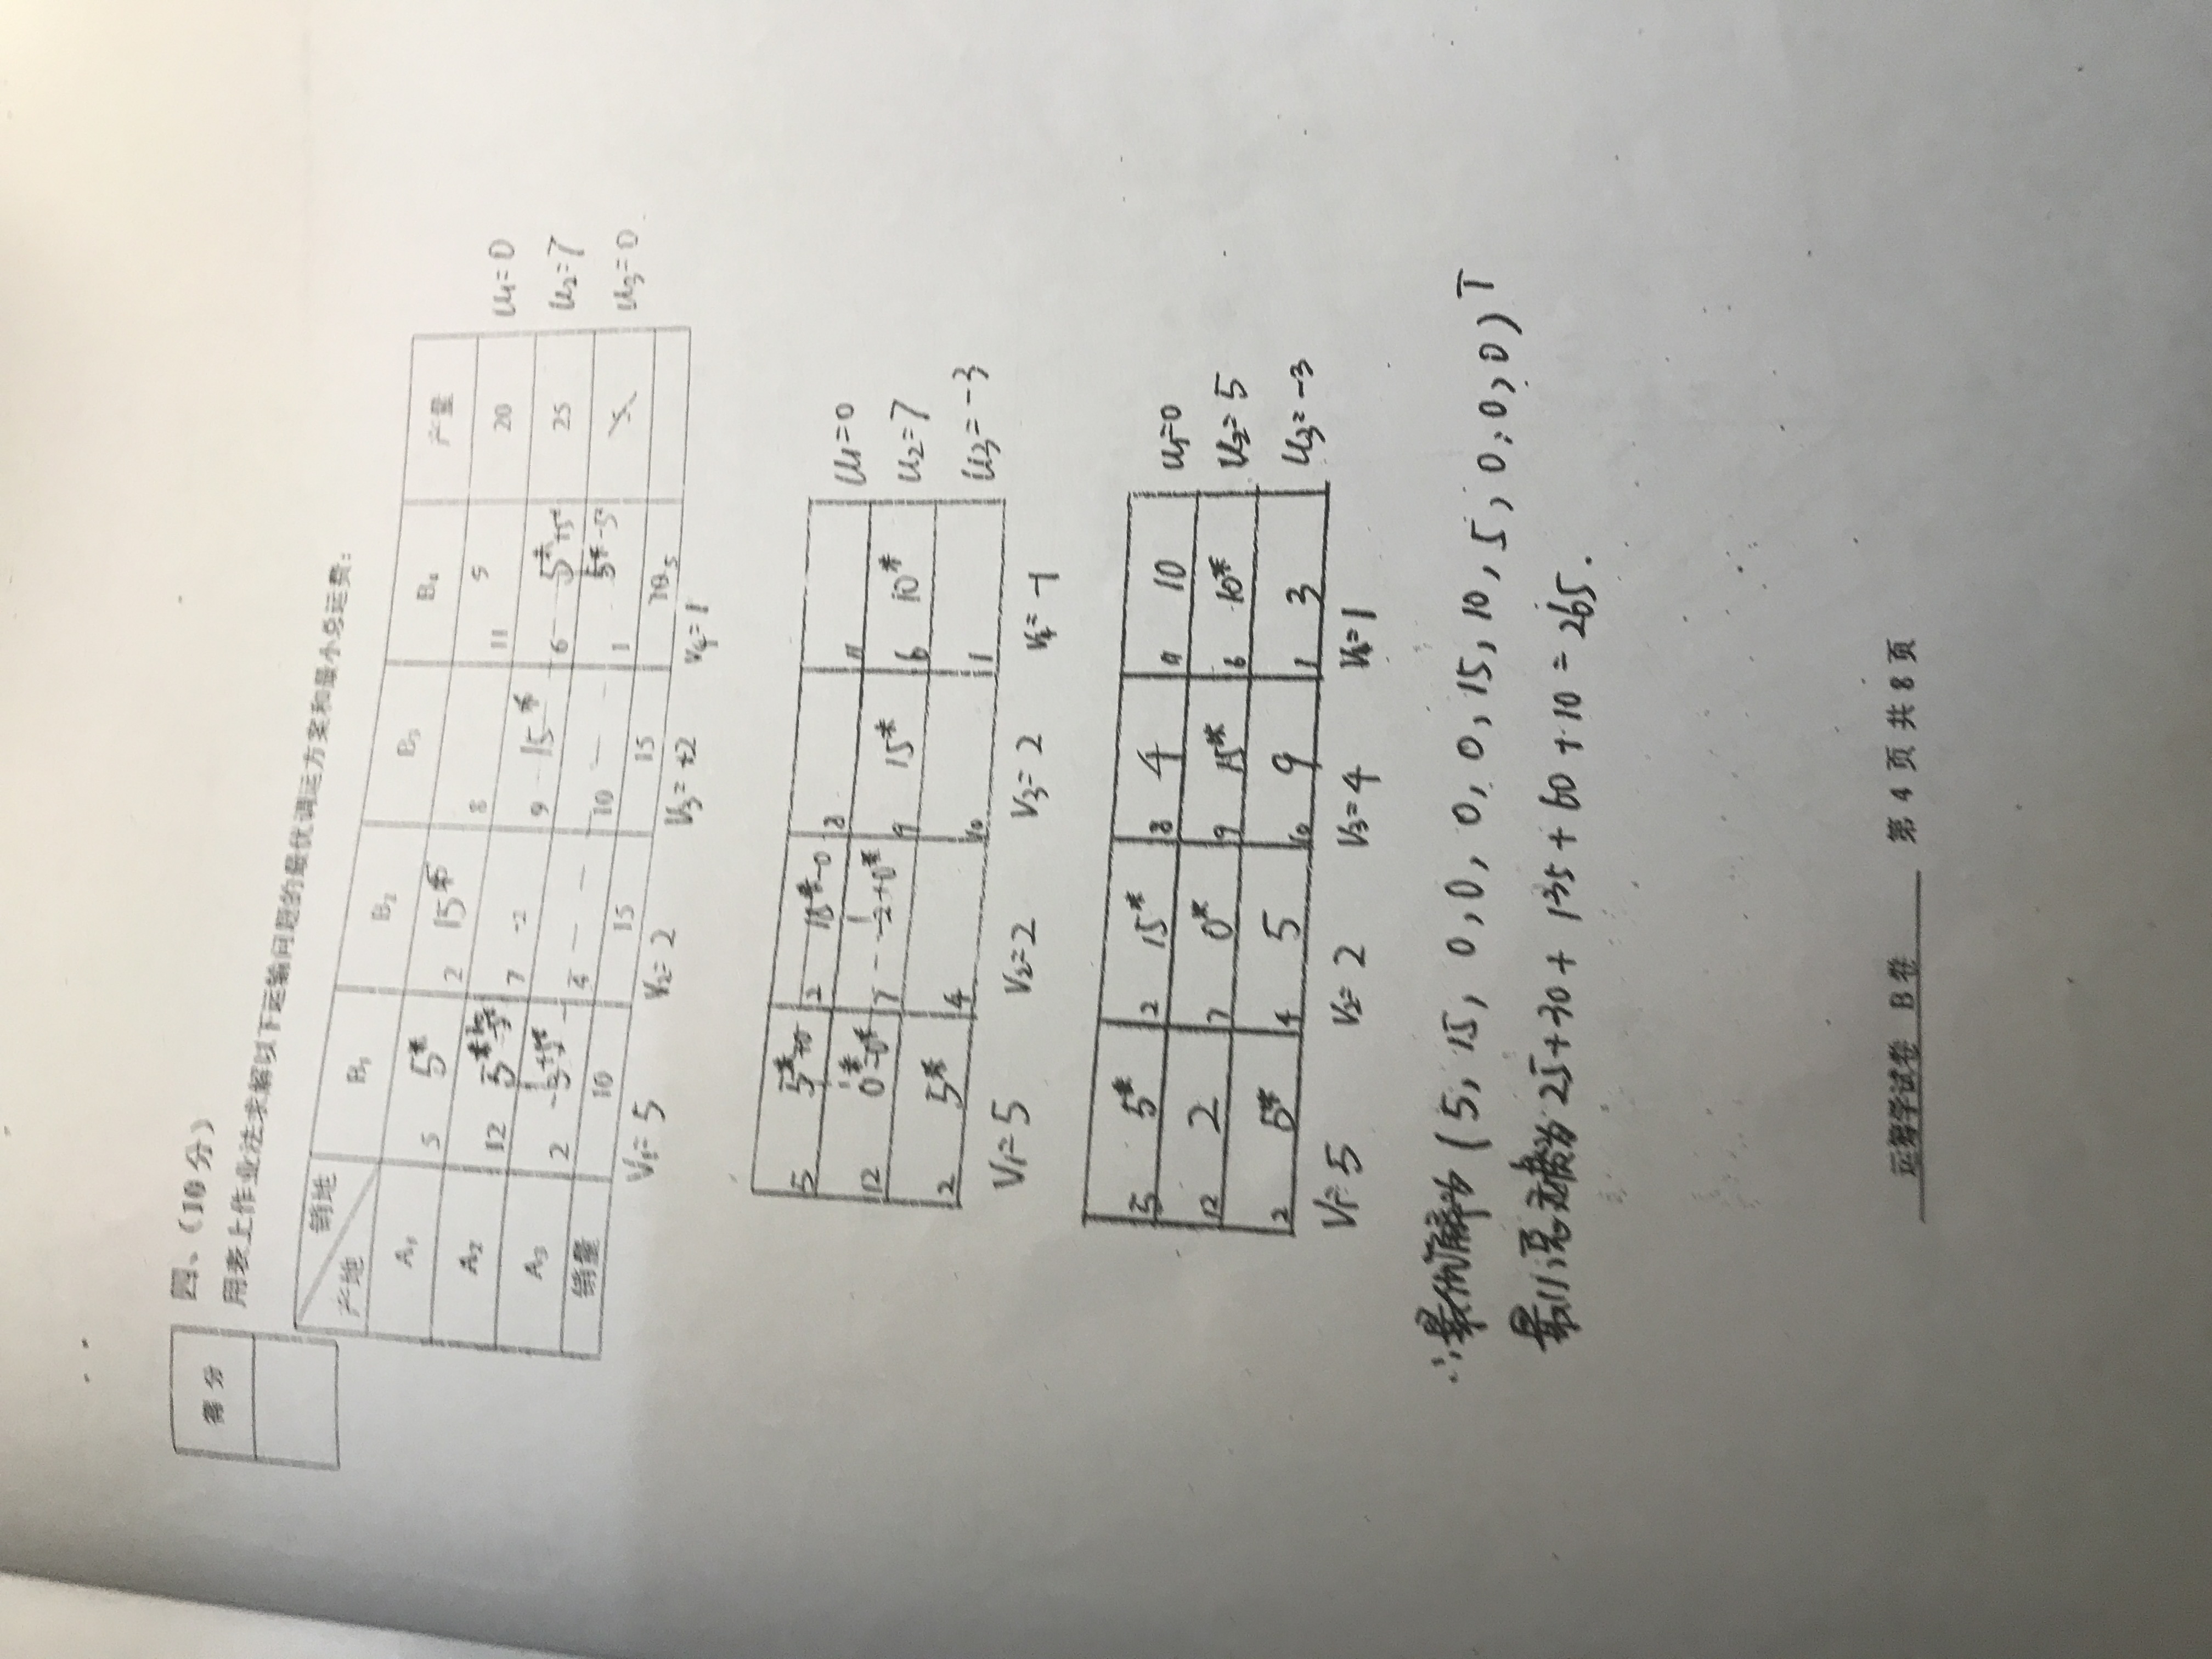 得 分
四、（10 分）
用表上作业法求解以下运输问题的最优调运方案和最小总运费：
销地
产地
B₁ B₂ B₃ B₄ 产量
A₁ 5 5* 2 15* 8 11 9 20 u₁=0
A₂ 12 5* 7 -2 9 15* 6 5*+5* 25 u₂=7
A₃ 2 -3+5* 4 10 1 5*-5* u₃=0
销量 10 15 15
V₁=5 V₂=2 V₃=+2 V₄=1
5 5*+0 2 15*-0 8 11 u₁=0
12 0*-0* 7 -2+0* 9 15* 6 10* u₂=7
2 5* 4 10 1 u₃=-3
V₁=5 V₂=2 V₃=2 V₄=-1
5 5* 2 15* 8 4 11 10 u₁=0
12 2 7 0* 9 15* 6 10* u₂=5
2 5* 4 5 10 9 1 3 u₃=-3
V₁=5 V₂=2 V₃=4 V₄=1
∴最优解为 (5, 15, 0, 0, 0, 0, 15, 10, 5, 0, 0, 0)ᵀ
最小总运费为 25+30+135+60+10=265.
运筹学试卷 B 卷 第 4 页 共 8 页